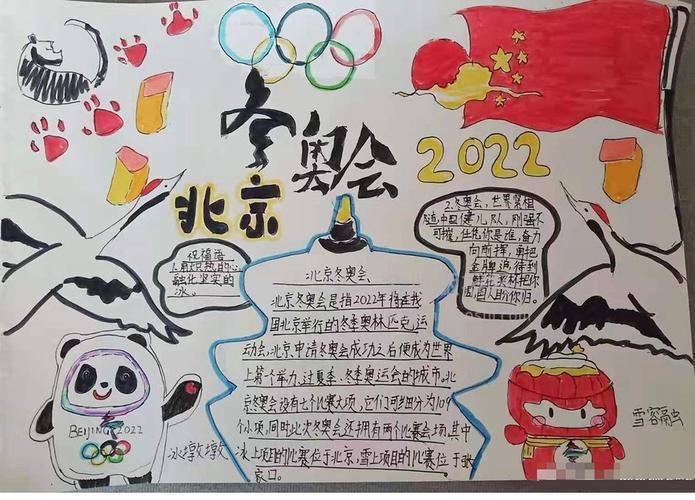 冬奥会
北京
2022
祝福语
1.用炽热的心
融化坚实的
冰。
2.冬奥会，世界紧相
随，中国健儿队，刚强不
可摧，任凭你是谁，奋力
向前挥，勇把
金牌追，得到
鲜花奖杯把你
遇，国人盼你归。
北京冬奥会
北京冬奥会是指2022年将在我
国北京举行的冬季奥林匹克，运
动会，北京，申请冬奥会成功之后便成为世界
上第一个举力，过夏季、冬季奥运会的城市。北
京冬奥会设有七个比赛大项，它们可细分为109
个小项，同时此次冬奥会还拥有两个比赛会场，其中
冰上项目的比赛位于北京，雪上项目的比赛位于张
家口。
BEIJING 2022
冰墩墩墩
雪容融